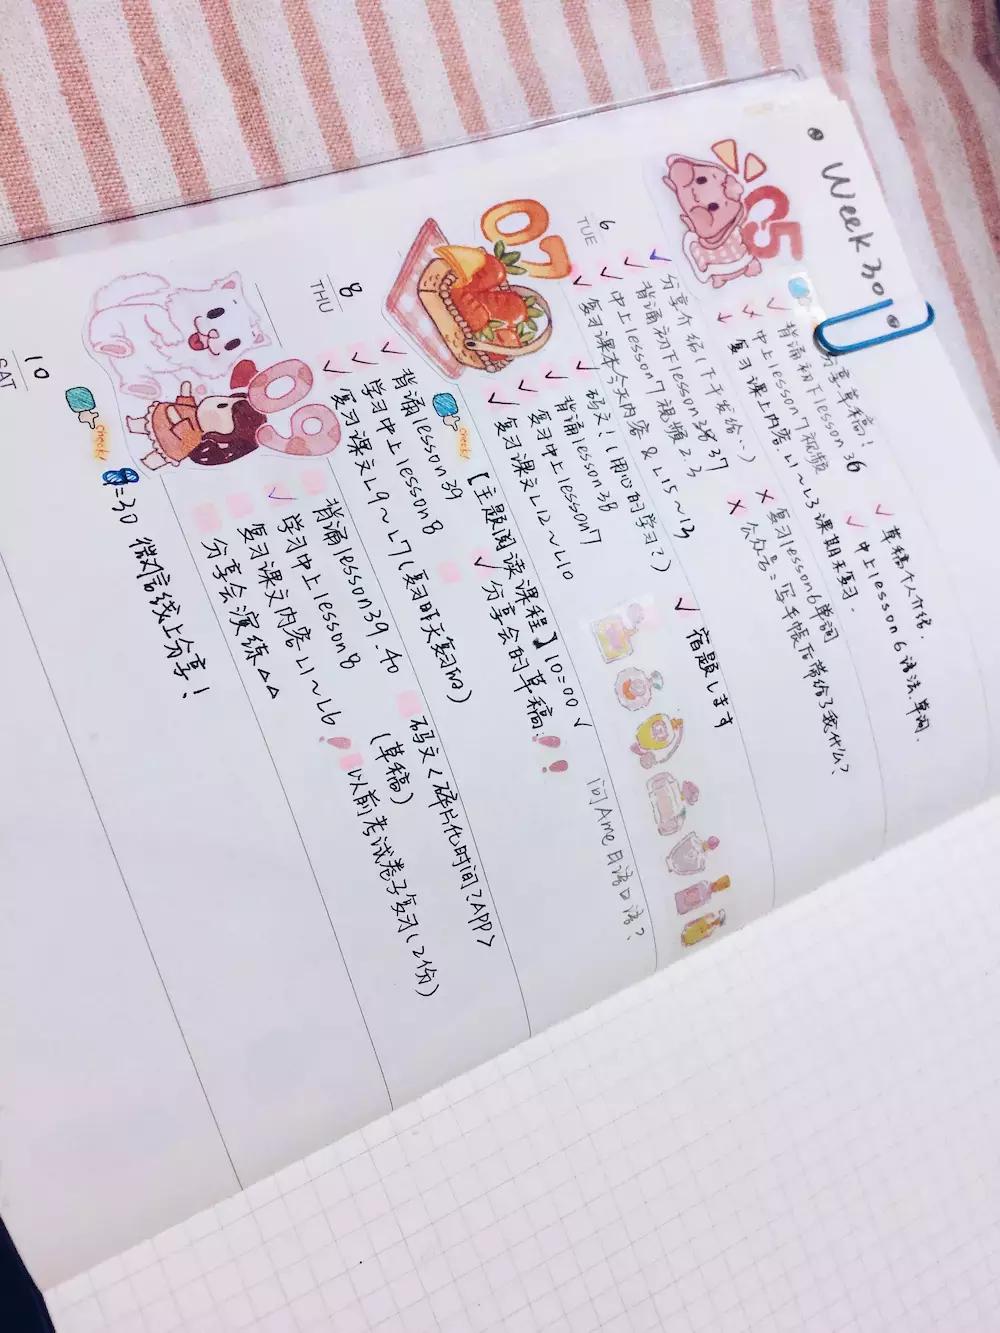 Week 30
05
分享草稿！
背诵初下lesson 36
中上lesson 7 视频
复习课上内容. L1～L3 课期末复习.
草稿个人介绍.
中上lesson 6 语法.单词.
复习lesson 6 单词
公众号：写手帐后带给了我什么？
6
TUE
分享介绍（下午发给..）
背诵初下lesson 37
中上lesson 7 视频 2.3
复习课本今天内容 & L15～13
宿题します
07
码文！（用心的学习？）
背诵lesson 38
复习中上lesson 7
复习课文 L12～L10
问Ame日语口语？
check
【主题阅读课程】10:00 √
8
THU
背诵lesson 39
学习中上lesson 8
复习课文 L9～L7（复习昨天复习的）
分享会的草稿.!!
码文<碎片化时间?APP>
（草稿）
09
背诵lesson 39.40
学习中上lesson 8
复习课文内容 L1～L6 !
分享会演练△△
以前考试卷子复习（2份）
check
:30 微信线上分享！
10
SAT